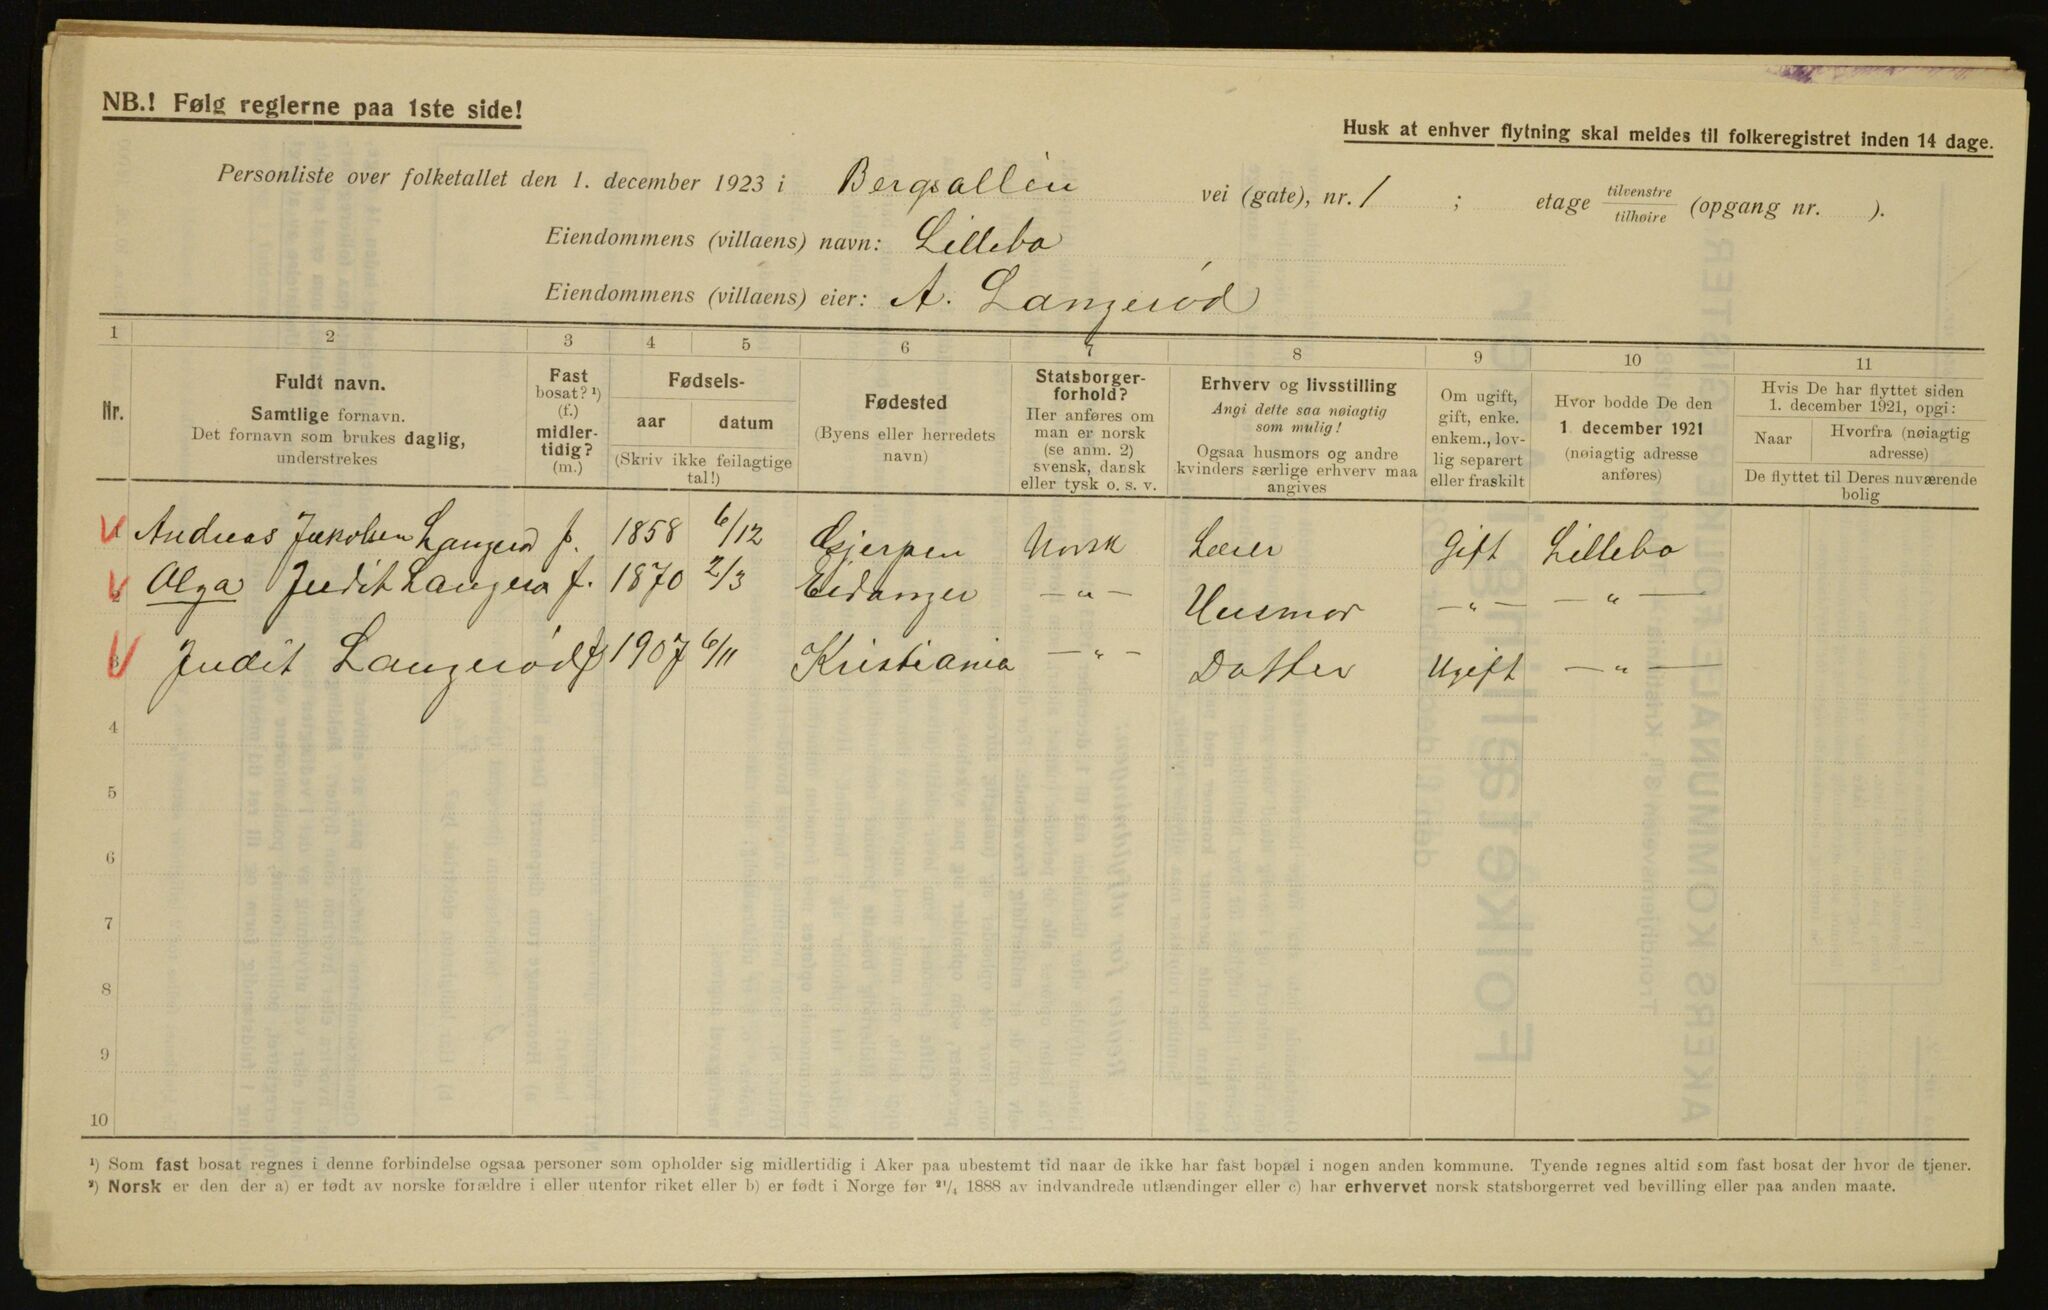 NB.! Følg reglerne paa 1ste side!
Husk at enhver flytning skal meldes til folkeregistret inden 14 dage.
Personliste over folketallet den 1. december 1923 i Bergsalleen vei (gate), nr. 1 ; etage tilvenstre / tilhøire (opgang nr. ).
Eiendommens (villaens) navn: Lillebo
Eiendommens (villaens) eier: A. Langerød
1 2 3 4 5 6 7 8 9 10 11
Nr.
Fuldt navn.
Samtlige fornavn.
Det fornavn som brukes daglig,
understrekes
Fast
bosat? ¹)
(f.)
midler-
tidig?
(m.)
Fødsels-
aar datum
(Skriv ikke feilagtige
tal!)
Fødested
(Byens eller herredets
navn)
Statsborger-
forhold?
Her anføres om
man er norsk
(se anm. 2)
svensk, dansk
eller tysk o. s. v.
Erhverv og livsstilling
Angi dette saa nøiagtig
som mulig!
Ogsaa husmors og andre
kvinders særlige erhverv maa
angives
Om ugift,
gift, enke.
enkem., lov-
lig separert
eller fraskilt
Hvor bodde De den
1 december 1921
(nøiagtig adresse
anføres)
Hvis De har flyttet siden
1. december 1921, opgi:
Naar Hvorfra (nøiagtig
adresse)
De flyttet til Deres nuværende
bolig
Andreas Jakobsen Langerød f. 1858 6/12 Gjerpen Norsk Lærer Gift Lillebo
2 Olga Judit Langerø f. 1870 2/3 Eidanger —〃— Husmor —〃— —〃—
3 Judit Langerød f 1907 6/11 Kristiania —〃— Datter Ugift —〃—
4
5
6
7
8
9
10
¹) Som fast bosat regnes i denne forbindelse ogsaa personer som opholder sig midlertidig i Aker paa ubestemt tid naar de ikke har fast bopæl i nogen anden kommune. Tyende regnes altid som fast bosat der hvor de tjener.
²) Norsk er den der a) er født av norske forældre i eller utenfor riket eller b) er født i Norge før ²¹/₄ 1888 av indvandrede utlændinger eller c) har erhvervet norsk statsborgerret ved bevilling eller paa anden maate.